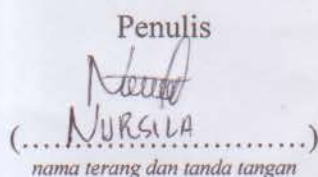 Penulis
(....NURSILA..............)
nama terang dan tanda tangan